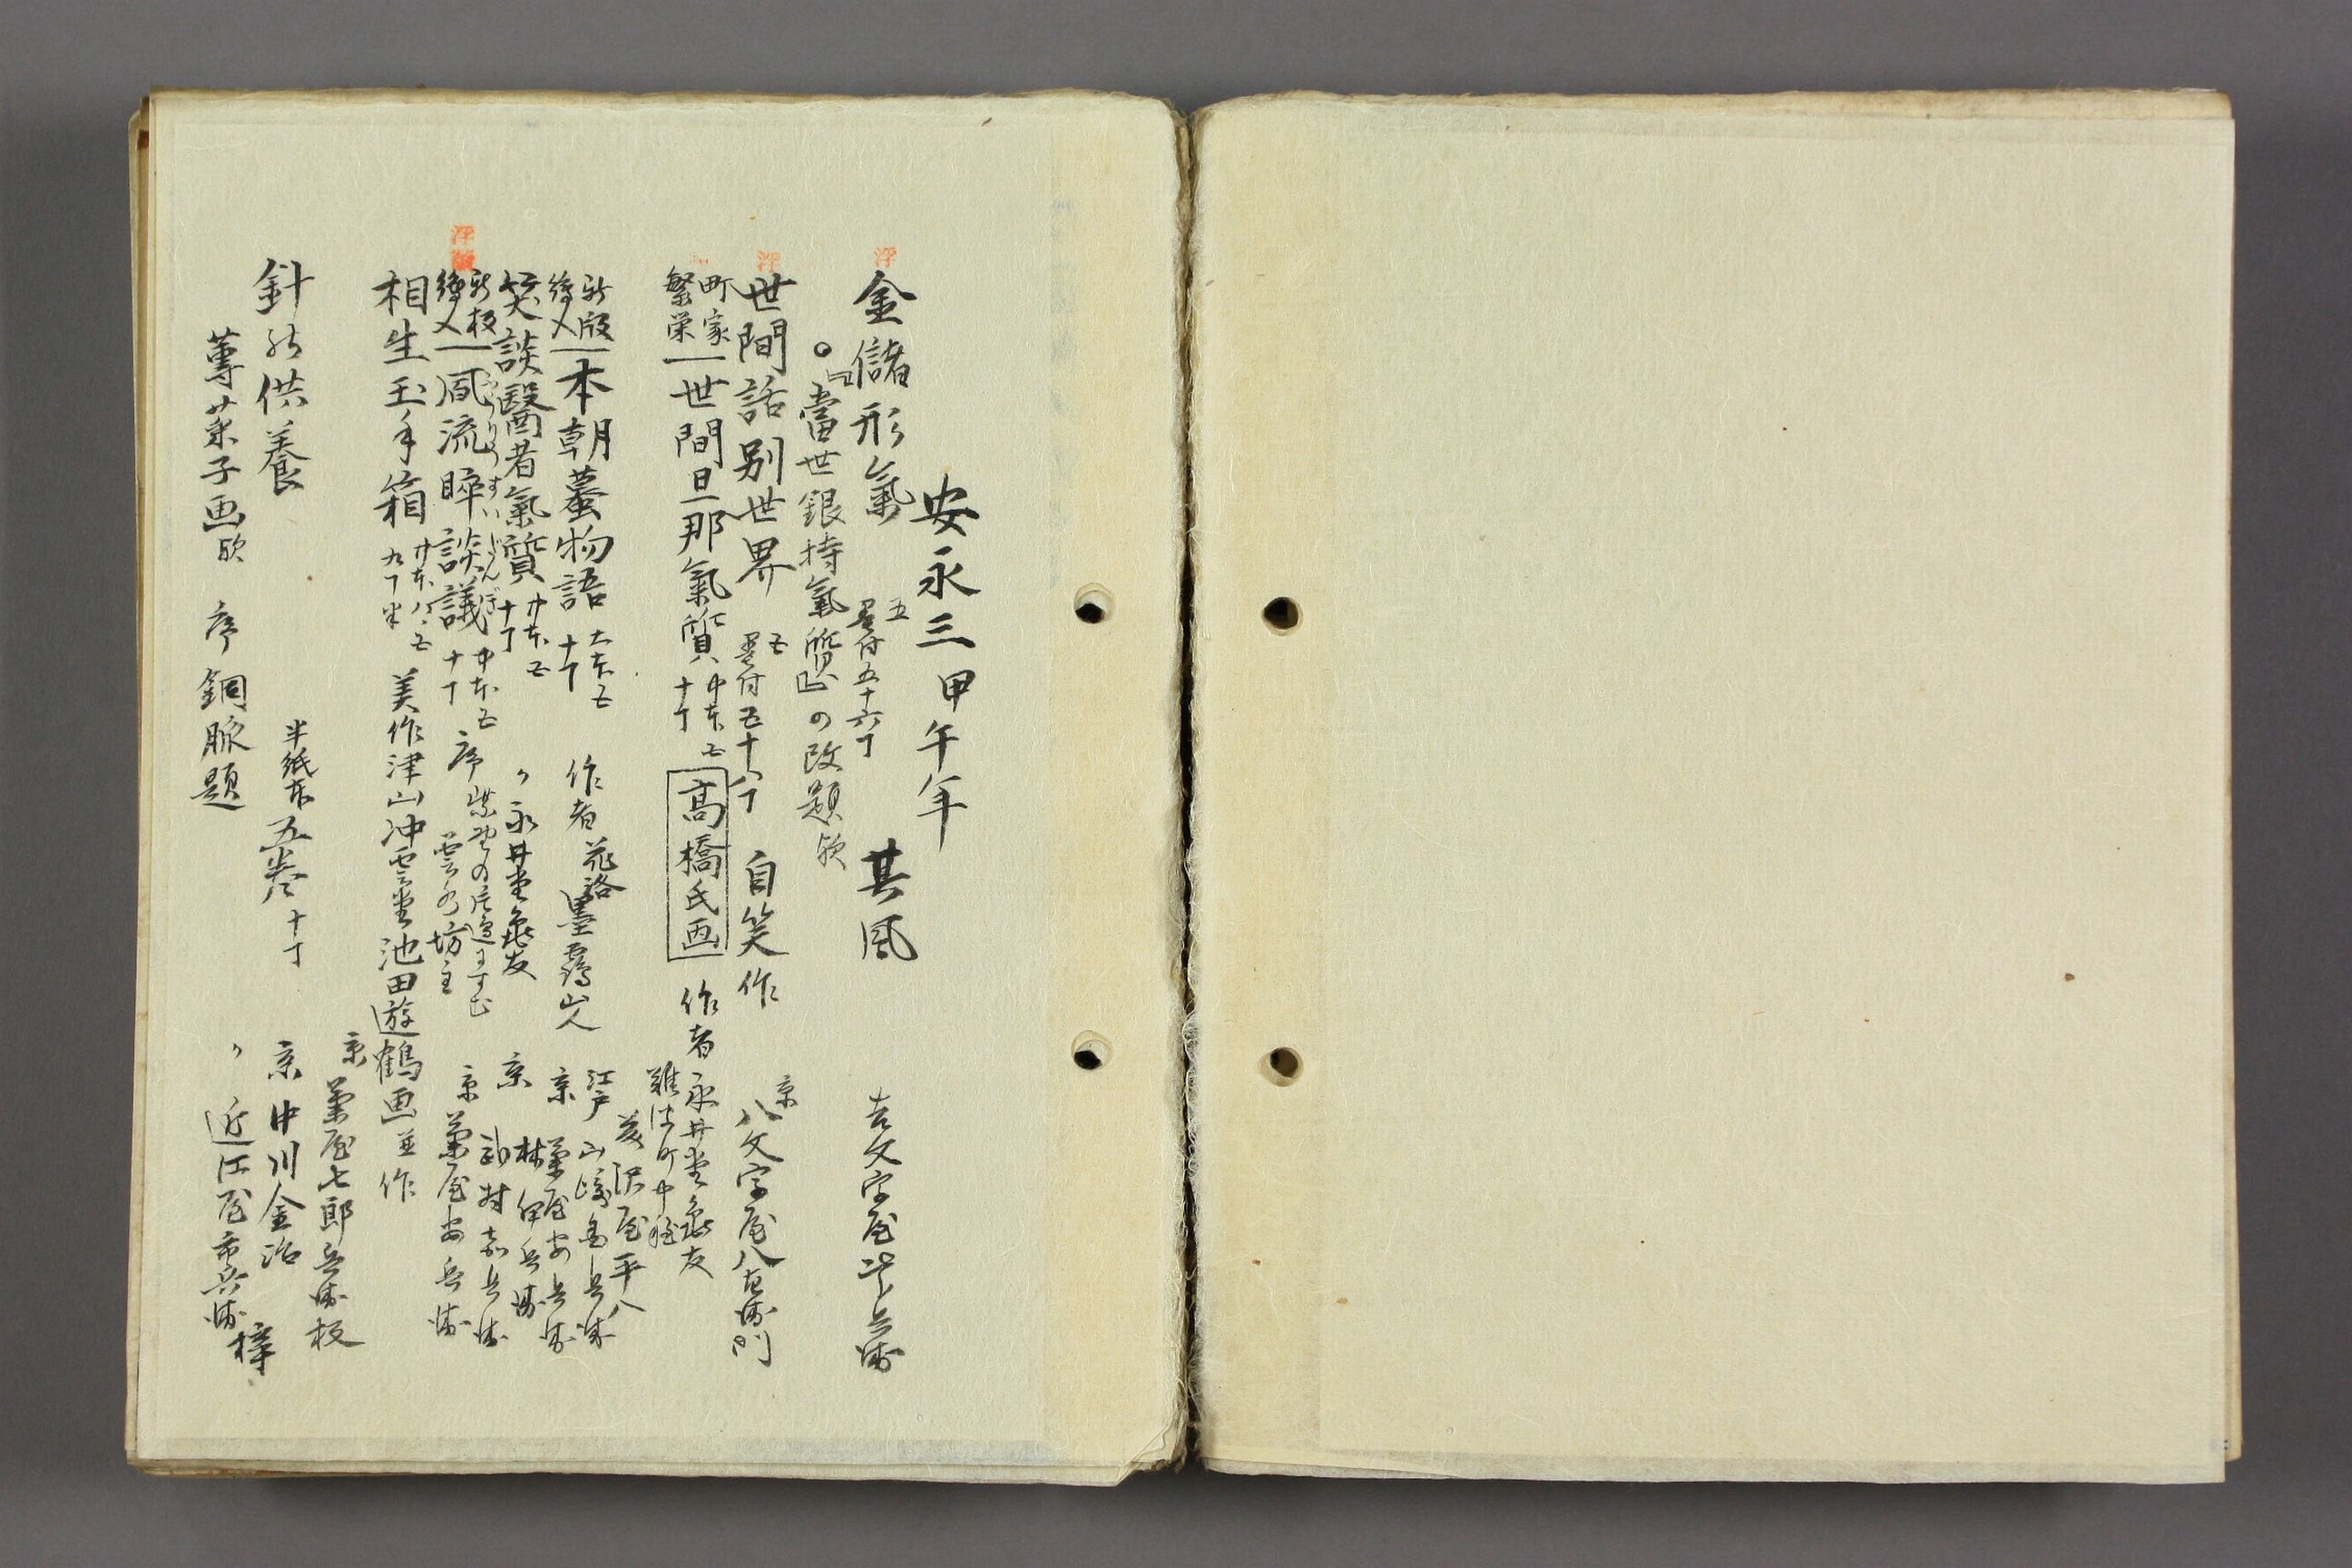 安永三甲午年
浮
金儲形氣 五 墨付五十六丁 其風 吉文字屋次郎兵衛
○『當世銀持氣質』の改題欤
浮
世間話別世界 五 墨付五十丁 自笑作 京 八文字屋八左衛門
町家繁栄 世間旦那氣質 中本五 十丁 高橋氏画 作者永井堂亀友
難波町中程
菱沢屋平八
新版繪入 本朝蟇物語 大本五 十丁 作者 花洛墨霞山人 江戸 山崎金兵衛
京 菊屋安兵衛
笑談醫者氣質 中本五 十丁 〃永井堂亀友 京 林伊兵衛
浮
新板繪入 風流睟談議 中本五 十丁 序 紫野の片邊にすむ 雲水坊主 京 菊屋安兵衛
ふうりうすいだんぎ
相生玉手箱 中本 五 九丁半 美作津山沖雲堂池田遊鶴画並作
京 菊屋七郎兵衛板
針の供養 半紙本五巻 十丁 京 中川金治
蓴菜子画欤 序 銅脈題 〃 近江屋市兵衛 梓